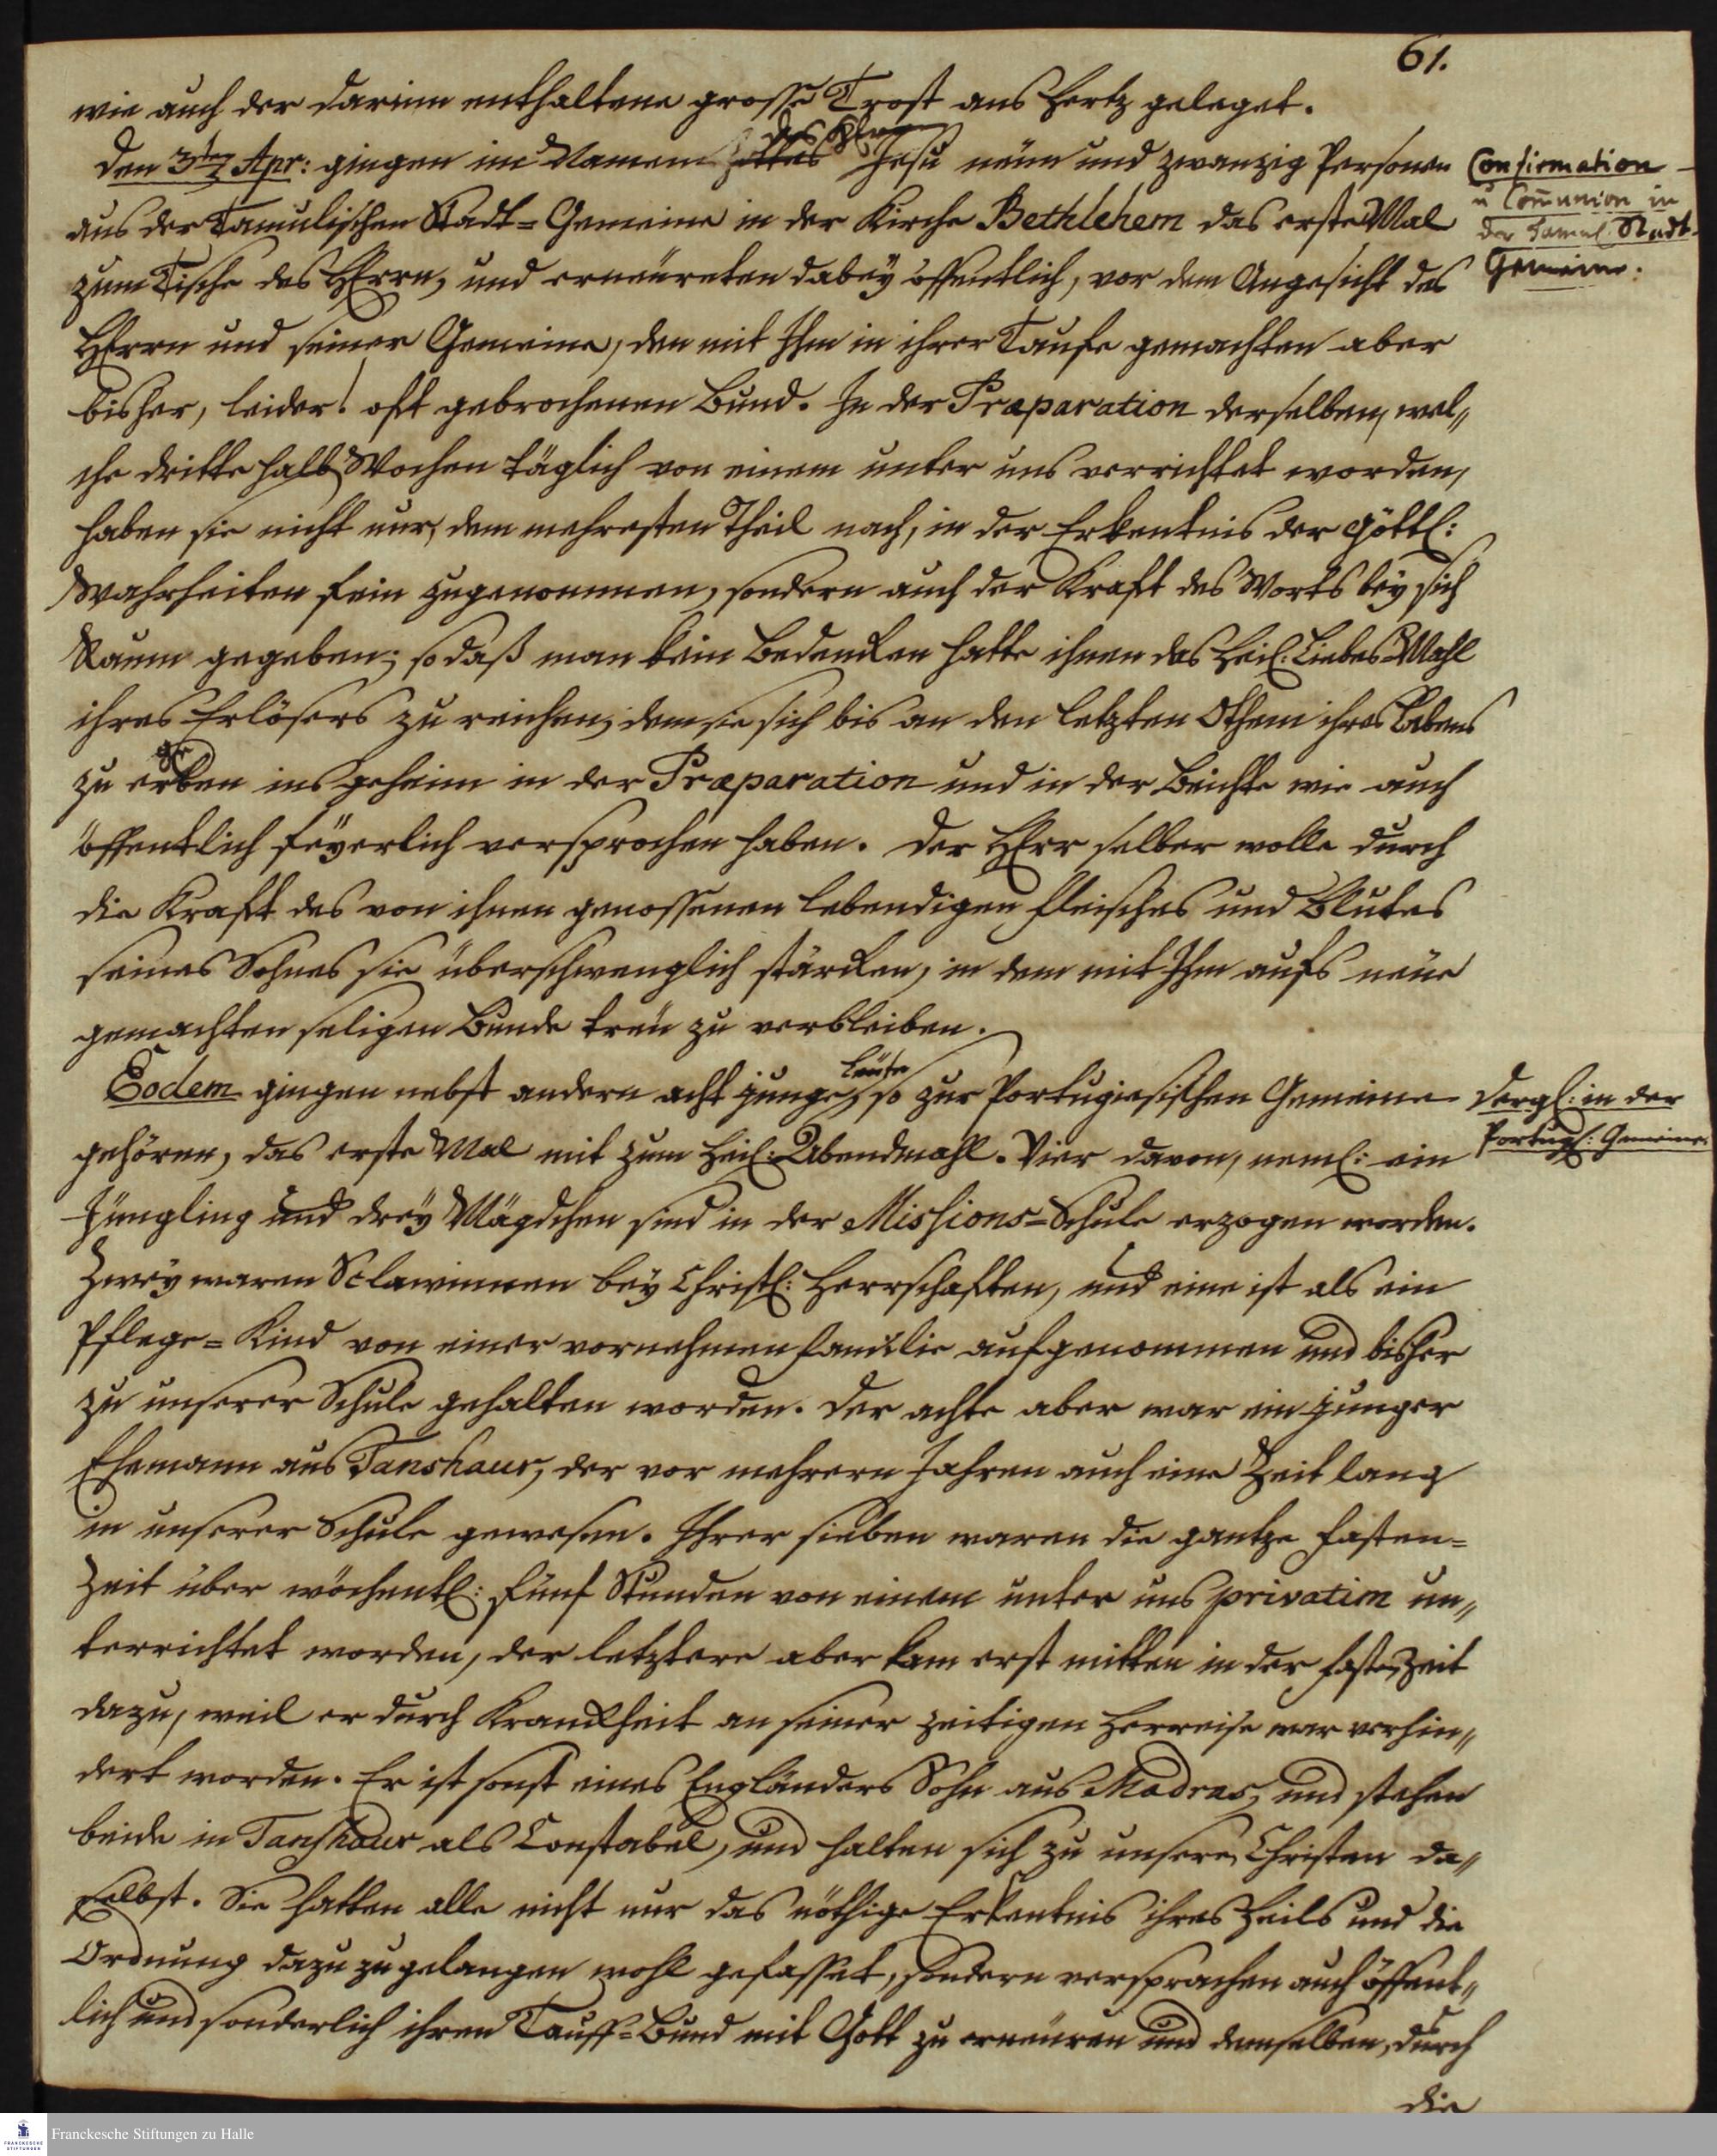 61.
wie auch der darinn enthaltene grosse Trost ans Hertz geleget.
Den 3ten Apr: gingen im Namen des HErrn Jesu neun und zwanzig Personen
Confirmation
u Com̄union in
der Tamul. Stadt-
Gemeine.
aus der Tamulischen Stadt=Gemeine in der Kirche Bethlehem das erste Mal
zum Tische des HErrn, und erneureten dabeÿ öffentlich, vor dem Angesicht des
HErrn und seiner Gemeine, den mit Ihm in ihrer Taufe gemachten aber
bisher, leider! oft gebrochenen Bund. In der Præparation derselben, wel„
che dritte halb Wochen täglich von einem unter uns verrichtet worden,
haben sie nicht nur, dem mehresten Theil nach, in der Erkentnis der Göttl:
Wahrheiten fein zugenommen, sondern auch der Kraft des Worts beÿ sich
Raum gegeben; so daß man kein Bedencken hatte ihnen das Heil: Liebes-Mahl
ihres Erlösers zu reichen, dem sie sich bis an den letzten Othem ihres Lebens
zu ergeben ins geheim in der Præparation und in der Beichte wie auch
öffentlich feÿerlich versprochen haben. Der HErr selber wolle durch
die Kraft des von ihnen genossenen lebendigen Fleisches und Blutes
seines Sohnes sie überschwenglich stärcken, in dem mit Ihm aufs neue
gemachten seligen Bunde treu zu verbleiben.
Eodem gingen nebst andern acht junge Leute, so zur Portugiesischen Gemeine
Dergl: in der
Portugs: Gemeine.
gehören, das erste Mal mit zum Heil: Abendmahl. Vier davon, neml: ein
Jüngling und dreÿ Mägdchen sind in der Missions=Schule erzogen worden.
Zweÿ waren Sclavinnen beÿ Christl: Herrschaften, und eine ist als ein
Pflege=Kind von einer vornehmen Familie aufgenommen und bisher
zu unserer Schule gehalten worden. Der achte aber war ein junger
Ehemann aus Tanshaur, der vor mehrern Jahren auch eine Zeit lang
in unserer Schule gewesen. Ihrer sieben waren die gantze Fasten=
Zeit über wöchentl: fünf Stunden von einem unter uns privatim un„
terrichtet worden, der letztere aber kam erst mitten in der Fastenzeit
dazu, weil er durch Kranckheit an seiner zeitigen Herreise war verhin„
dert worden. Er ist sonst eines Engländers Sohn aus Madras, und stehen
beide in Tanshaur als Constabel, und halten sich zu unsern Christen da„
selbst. Sie hatten alle nicht nur das nöthige Erkentnis ihres Heils und die
Ordnung dazu zu gelangen wohl gefasset, sondern versprachen auch öffent„
lich und sonderlich ihren Tauff=Bund mit Gott zu erneuren und demselben, durch
die
Franckesche Stiftungen zu Halle